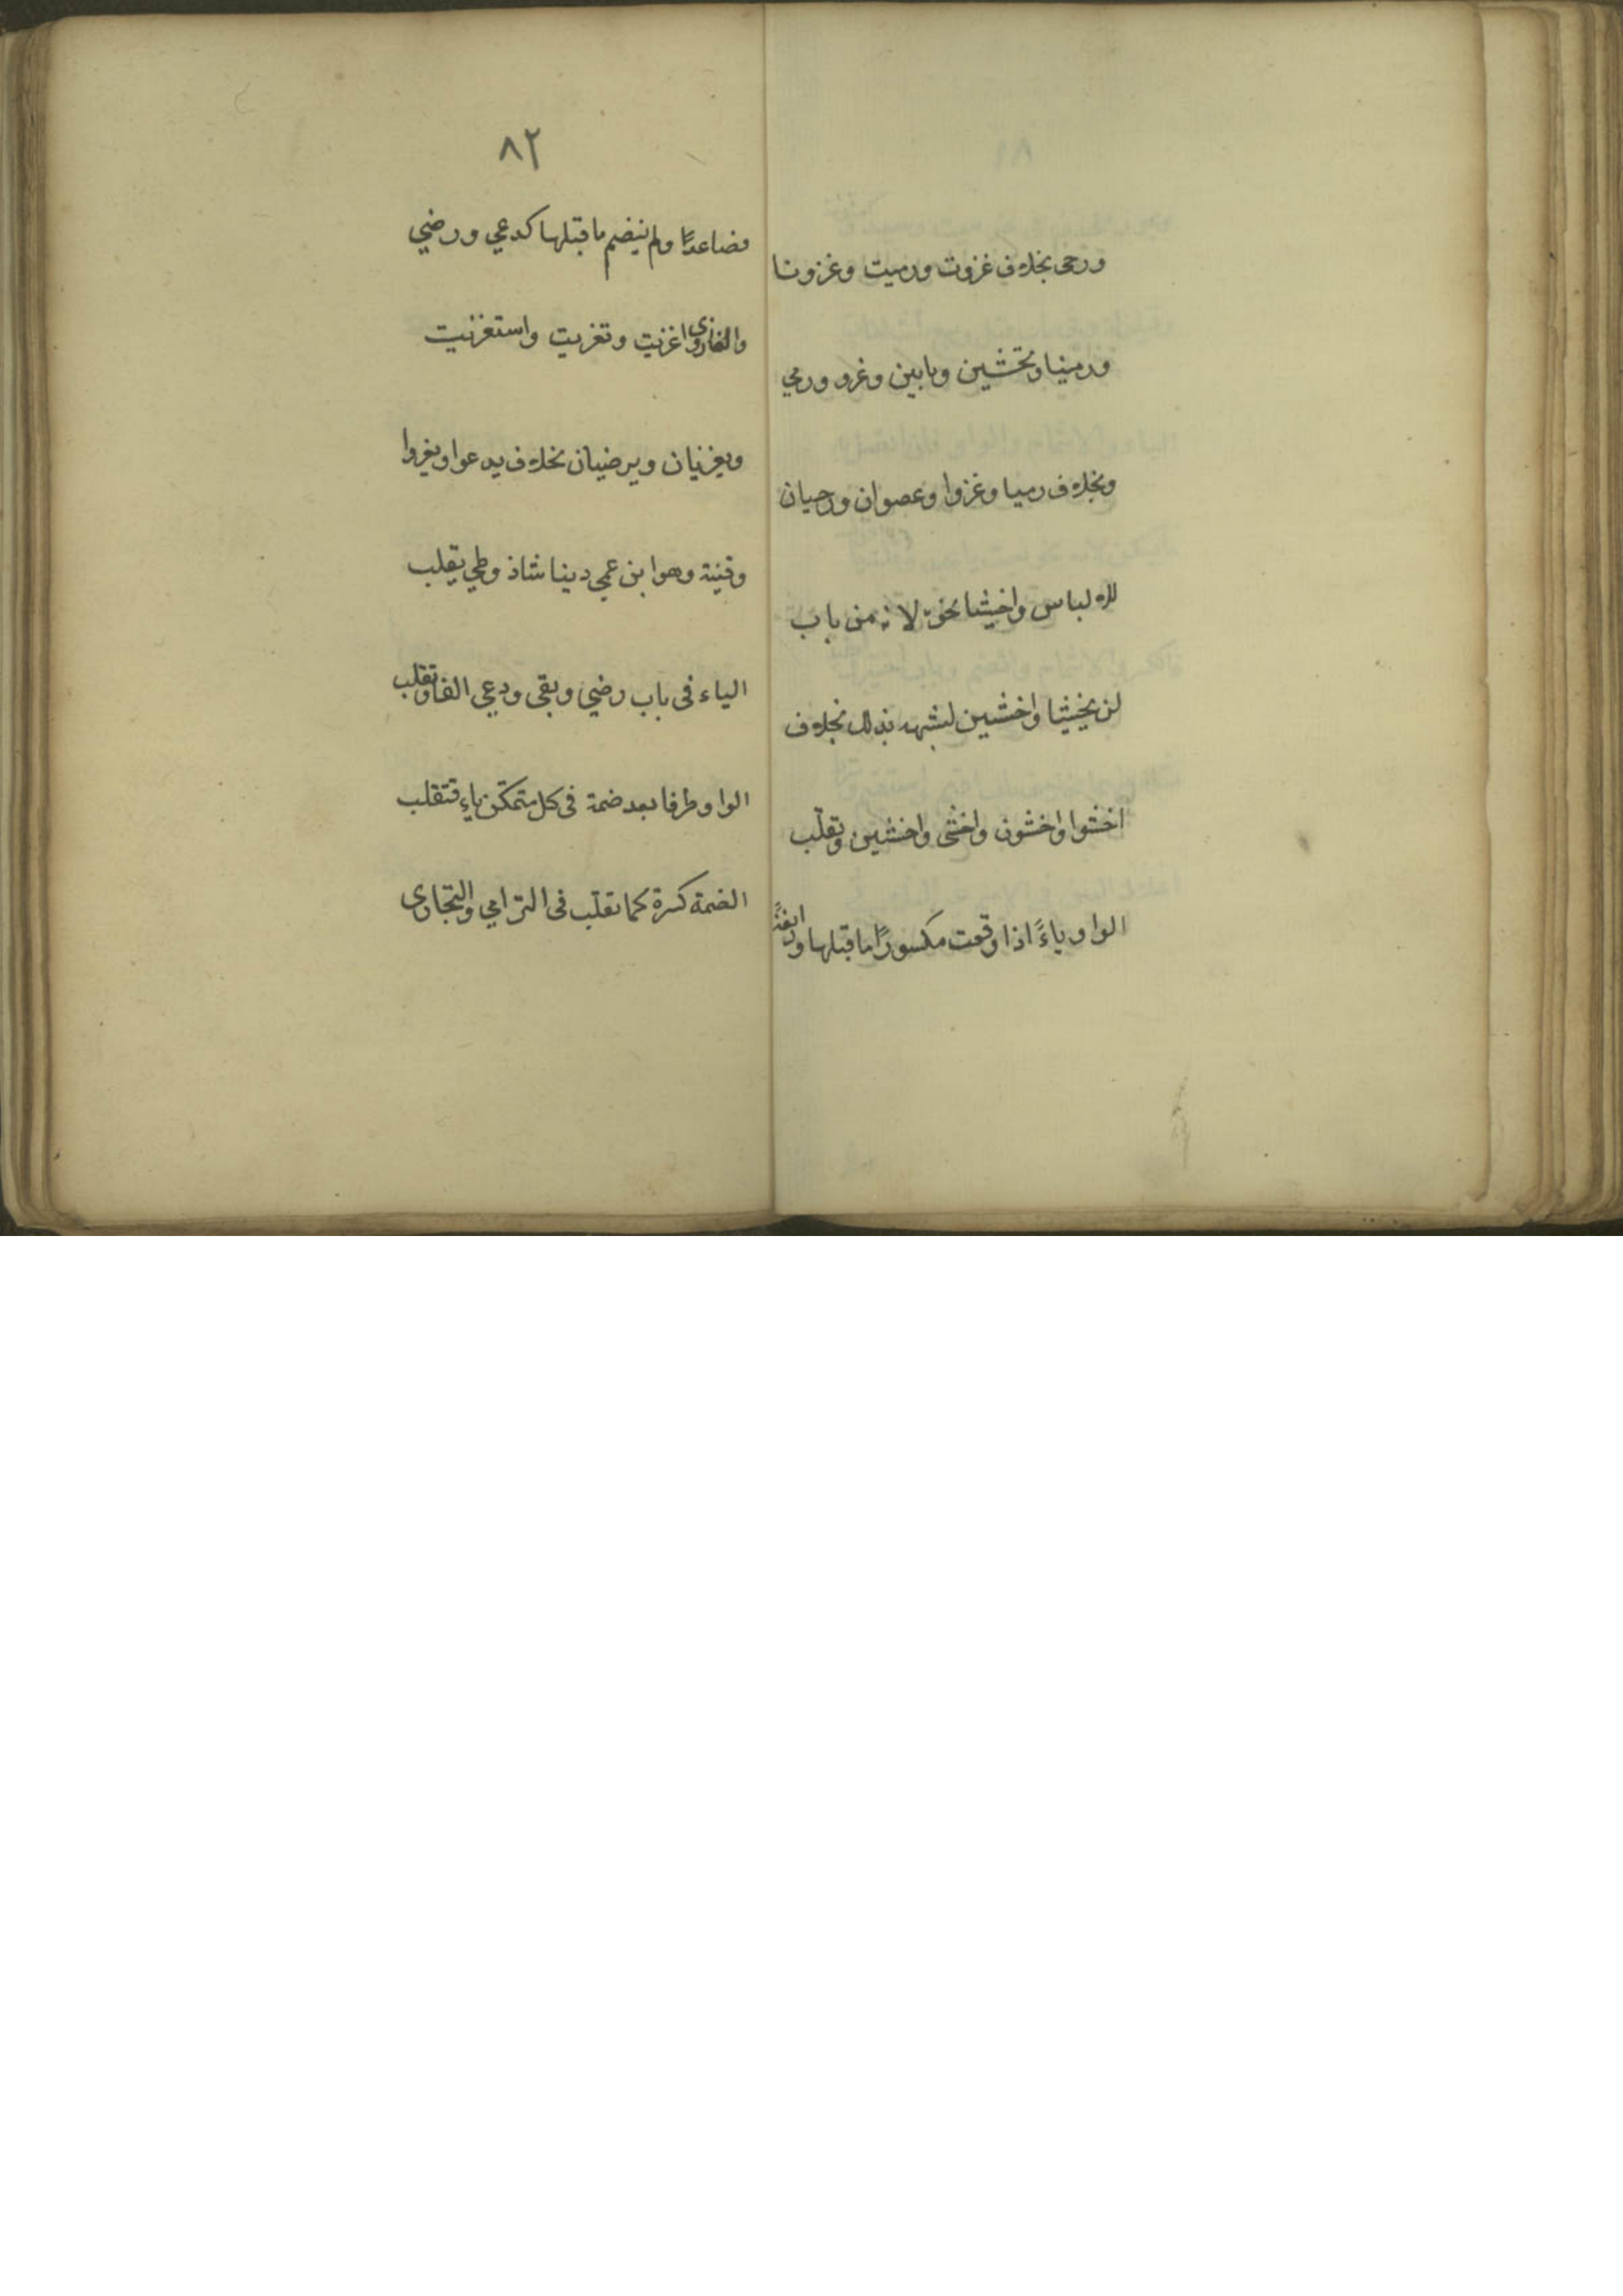 ورحى بخلاف غزوت ورميت وغزونا
ورمينا وتخشين وتابين وغزو ورمي
وبخلاف رميا وغزوا وعصوان ورحيان
للالباس واخشيا نحوه لانه من باب
لن يخشيا واخشين لشبهه بذلك بخلاف
اخشوا واخشون واخشى واخشين وتقلب
الواو ياءً اذا وقعت مكسورًا ما قبلها او رابعةً
٨٢
فصاعدًا ولم ينضم ما قبلها كدعي ورضي
والغازي واغزيت وتغزيت واستغزيت
ويغزيان ويرضيان بخلاف يدعوا ويغزوا
وقنية وهو ابن عمي دينا شاذ وطي يقلب
الياء في باب رضي وبقى ودعي الفا وتقلب
الواو طرفا بعد ضمة في كل متمكن ياء فتقلب
الضمة كسرة كما تقلب في الترامي والتجارى